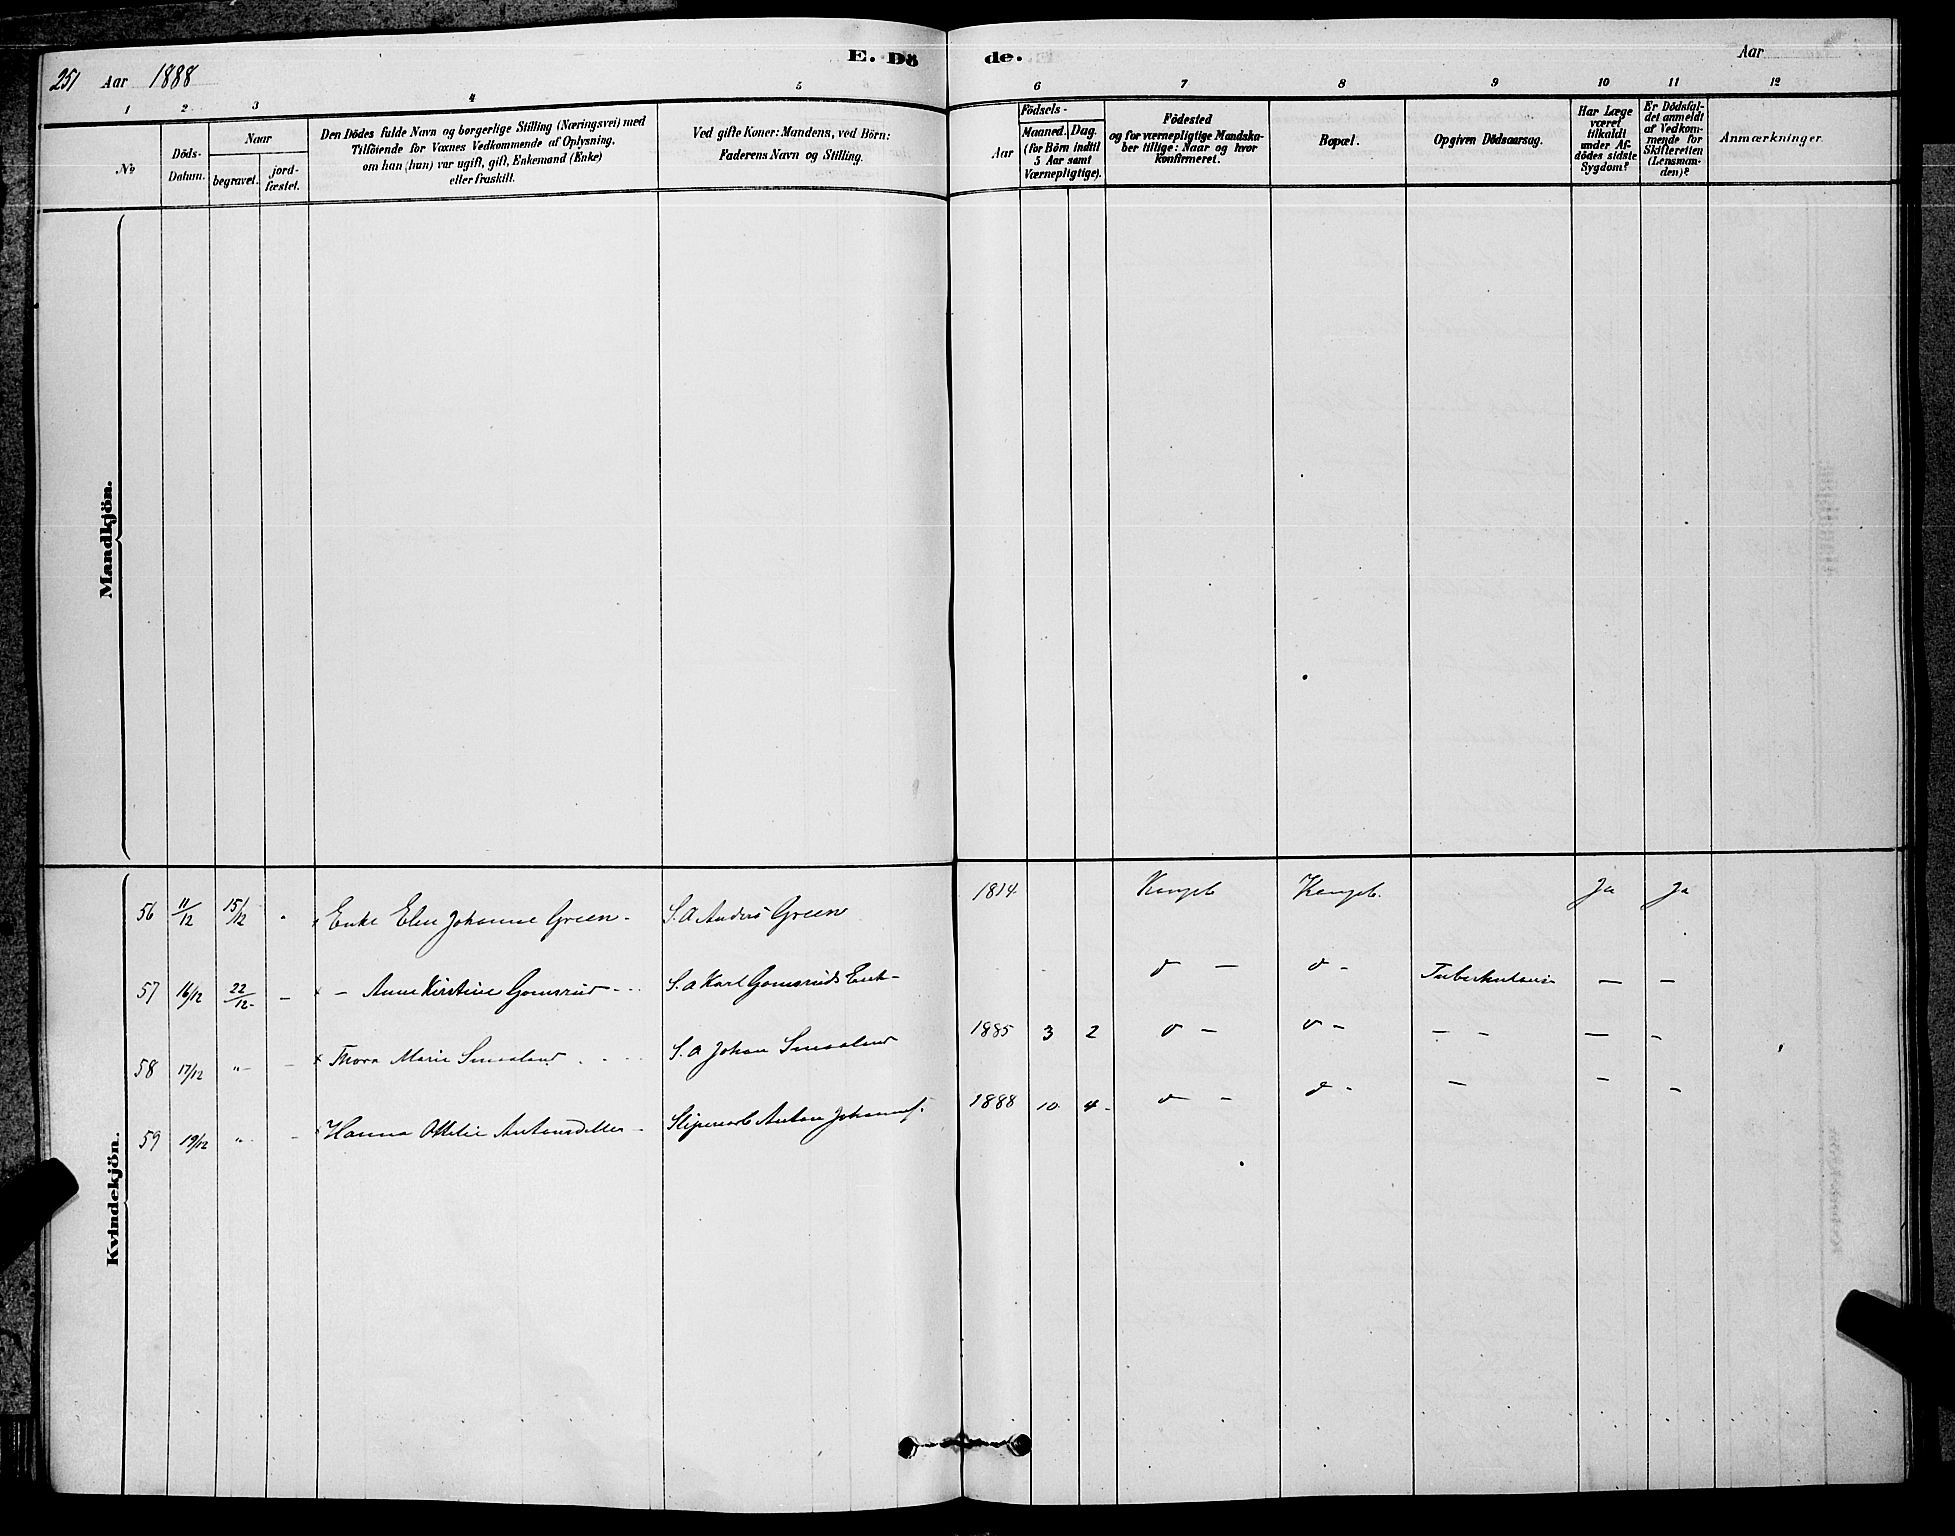 251 Aar 1888 E. Dö de. Aar
1 2 3 4 5 6 7 8 9 10 11 12
No
Döds-
Datum.
Naar
begravet.
jord-
fæstet.
Den Dödes fulde Navn og borgerlige Stilling (Næringsvei) med
Tilföiende for Voxnes Vedkommende af Oplysning,
om han (hun) var ugift, gift, Enkemand (Enke)
eller fraskilt.
Ved gifte Koner: Mandens, ved Börn:
Faderens Navn og Stilling.
Födsels-
Aar
Maaned. Dag.
(for Börn indtil
5 Aar samt
Værnepligtige).
Födested
og for værnepligtige Mandska-
ber tillige: Naar og hvor
konfirmeret.
Bopæl.
Opgiven Dödsaarsag.
Har Læge
været
tilkaldt
under Af-
dödes sidste
Sygdom?
Er Dödsfal-
det anmeldt
af Vedkom-
mende for
Skifteretten
(Lensman-
den)?
Anmærkninger.
Mandkjön.
Kvindekjön.
56 11/12 15/12 " Enke Elen Johanne Green - S. A Anders Green 1814 Kongsb Kongsb. Ja Ja
57 16/12 22/12 - x - Anne Kirstine Gomsrud - S. A Karl Gomsruds Enk- d - d - Tuberkulosis - -
58 17/12 " - x Thora Marie Smaaland S. A Johan Smaaland 1885 3 2 d - d - - - - -
59 19/12 " - x Hanna Ottilie Antonsdatter - Sliperarb Anton Johannes. 1888 10 4 - d - d - - - -